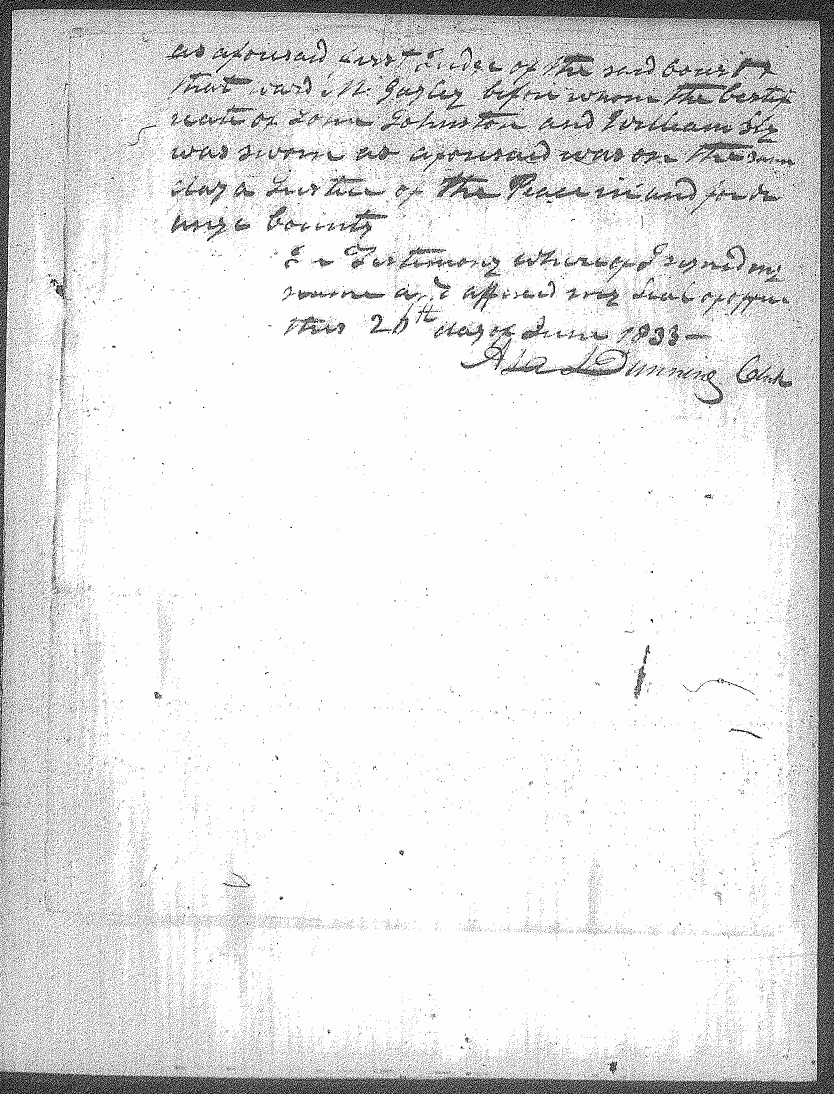 as aforesaid first Judge of the said Court &
that Ward M. Gazley before whom the Certif
icate of John Johnston and William Sly
was sworn as aforesaid was on the same
day a Justice of the Peace in and for Or
ange County
In Testimony whereof I signed my
name and affixed my Seal of office
this 26th day of June 1833 —
Asa Dunning Clerk